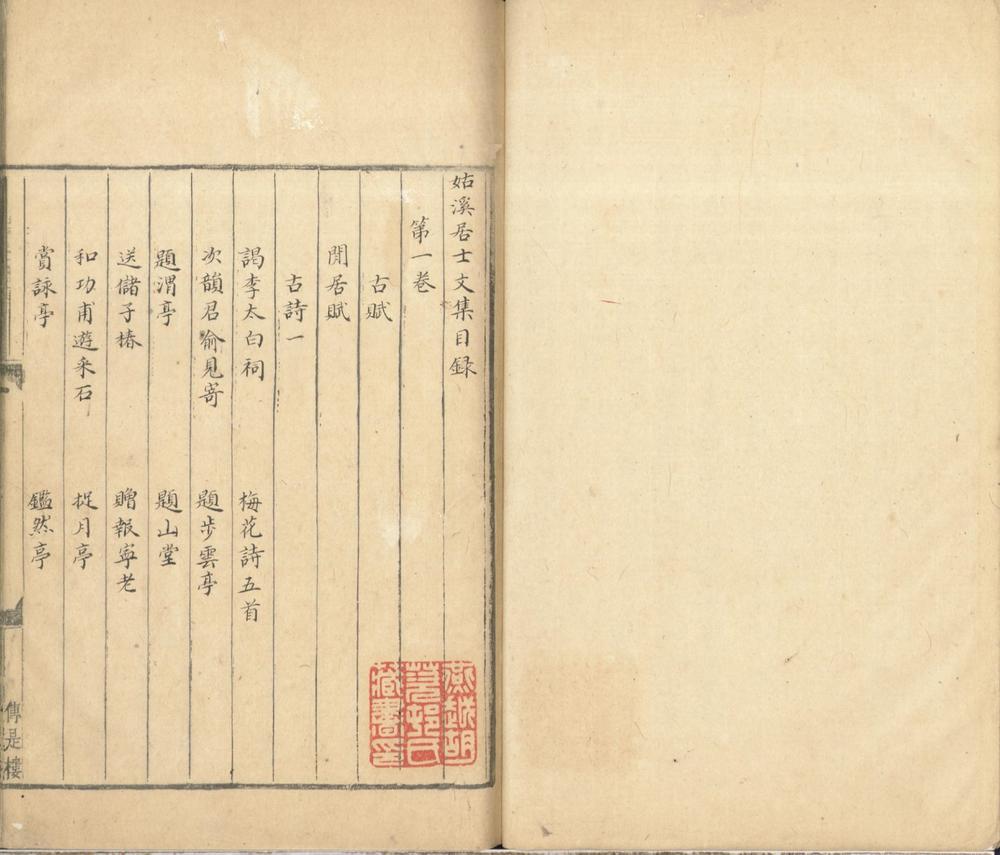 姑溪居士文集目録
第一卷
古賦
閒居賦
古詩一
謁李太白祠 梅花詩五首
次韻君俞見寄 題步雲亭
題渭亭 題山堂
送儲子椿 贈報寧老
和功甫遊采石 捉月亭
賞詠亭 鑑然亭
傳是樓
燕越胡
茭邨氏
藏書印